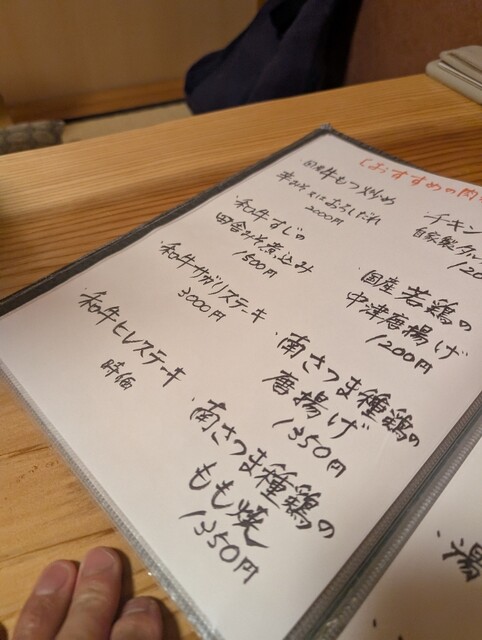 《おすすめの肉
・チキン
自家製タル
120
・国産若鶏の
中津唐揚げ
1200円
・南さつま種鶏の
唐揚げ
1350円
・南さつま種鶏の
もも焼
1350円
・国産牛もつ炒め
辛みそ又はおろしだれ
2000円
・和牛すじの
田舎みそ煮込み
1500円
・和牛サガリステーキ
3000円
・和牛ヒレステーキ
時価
・湯